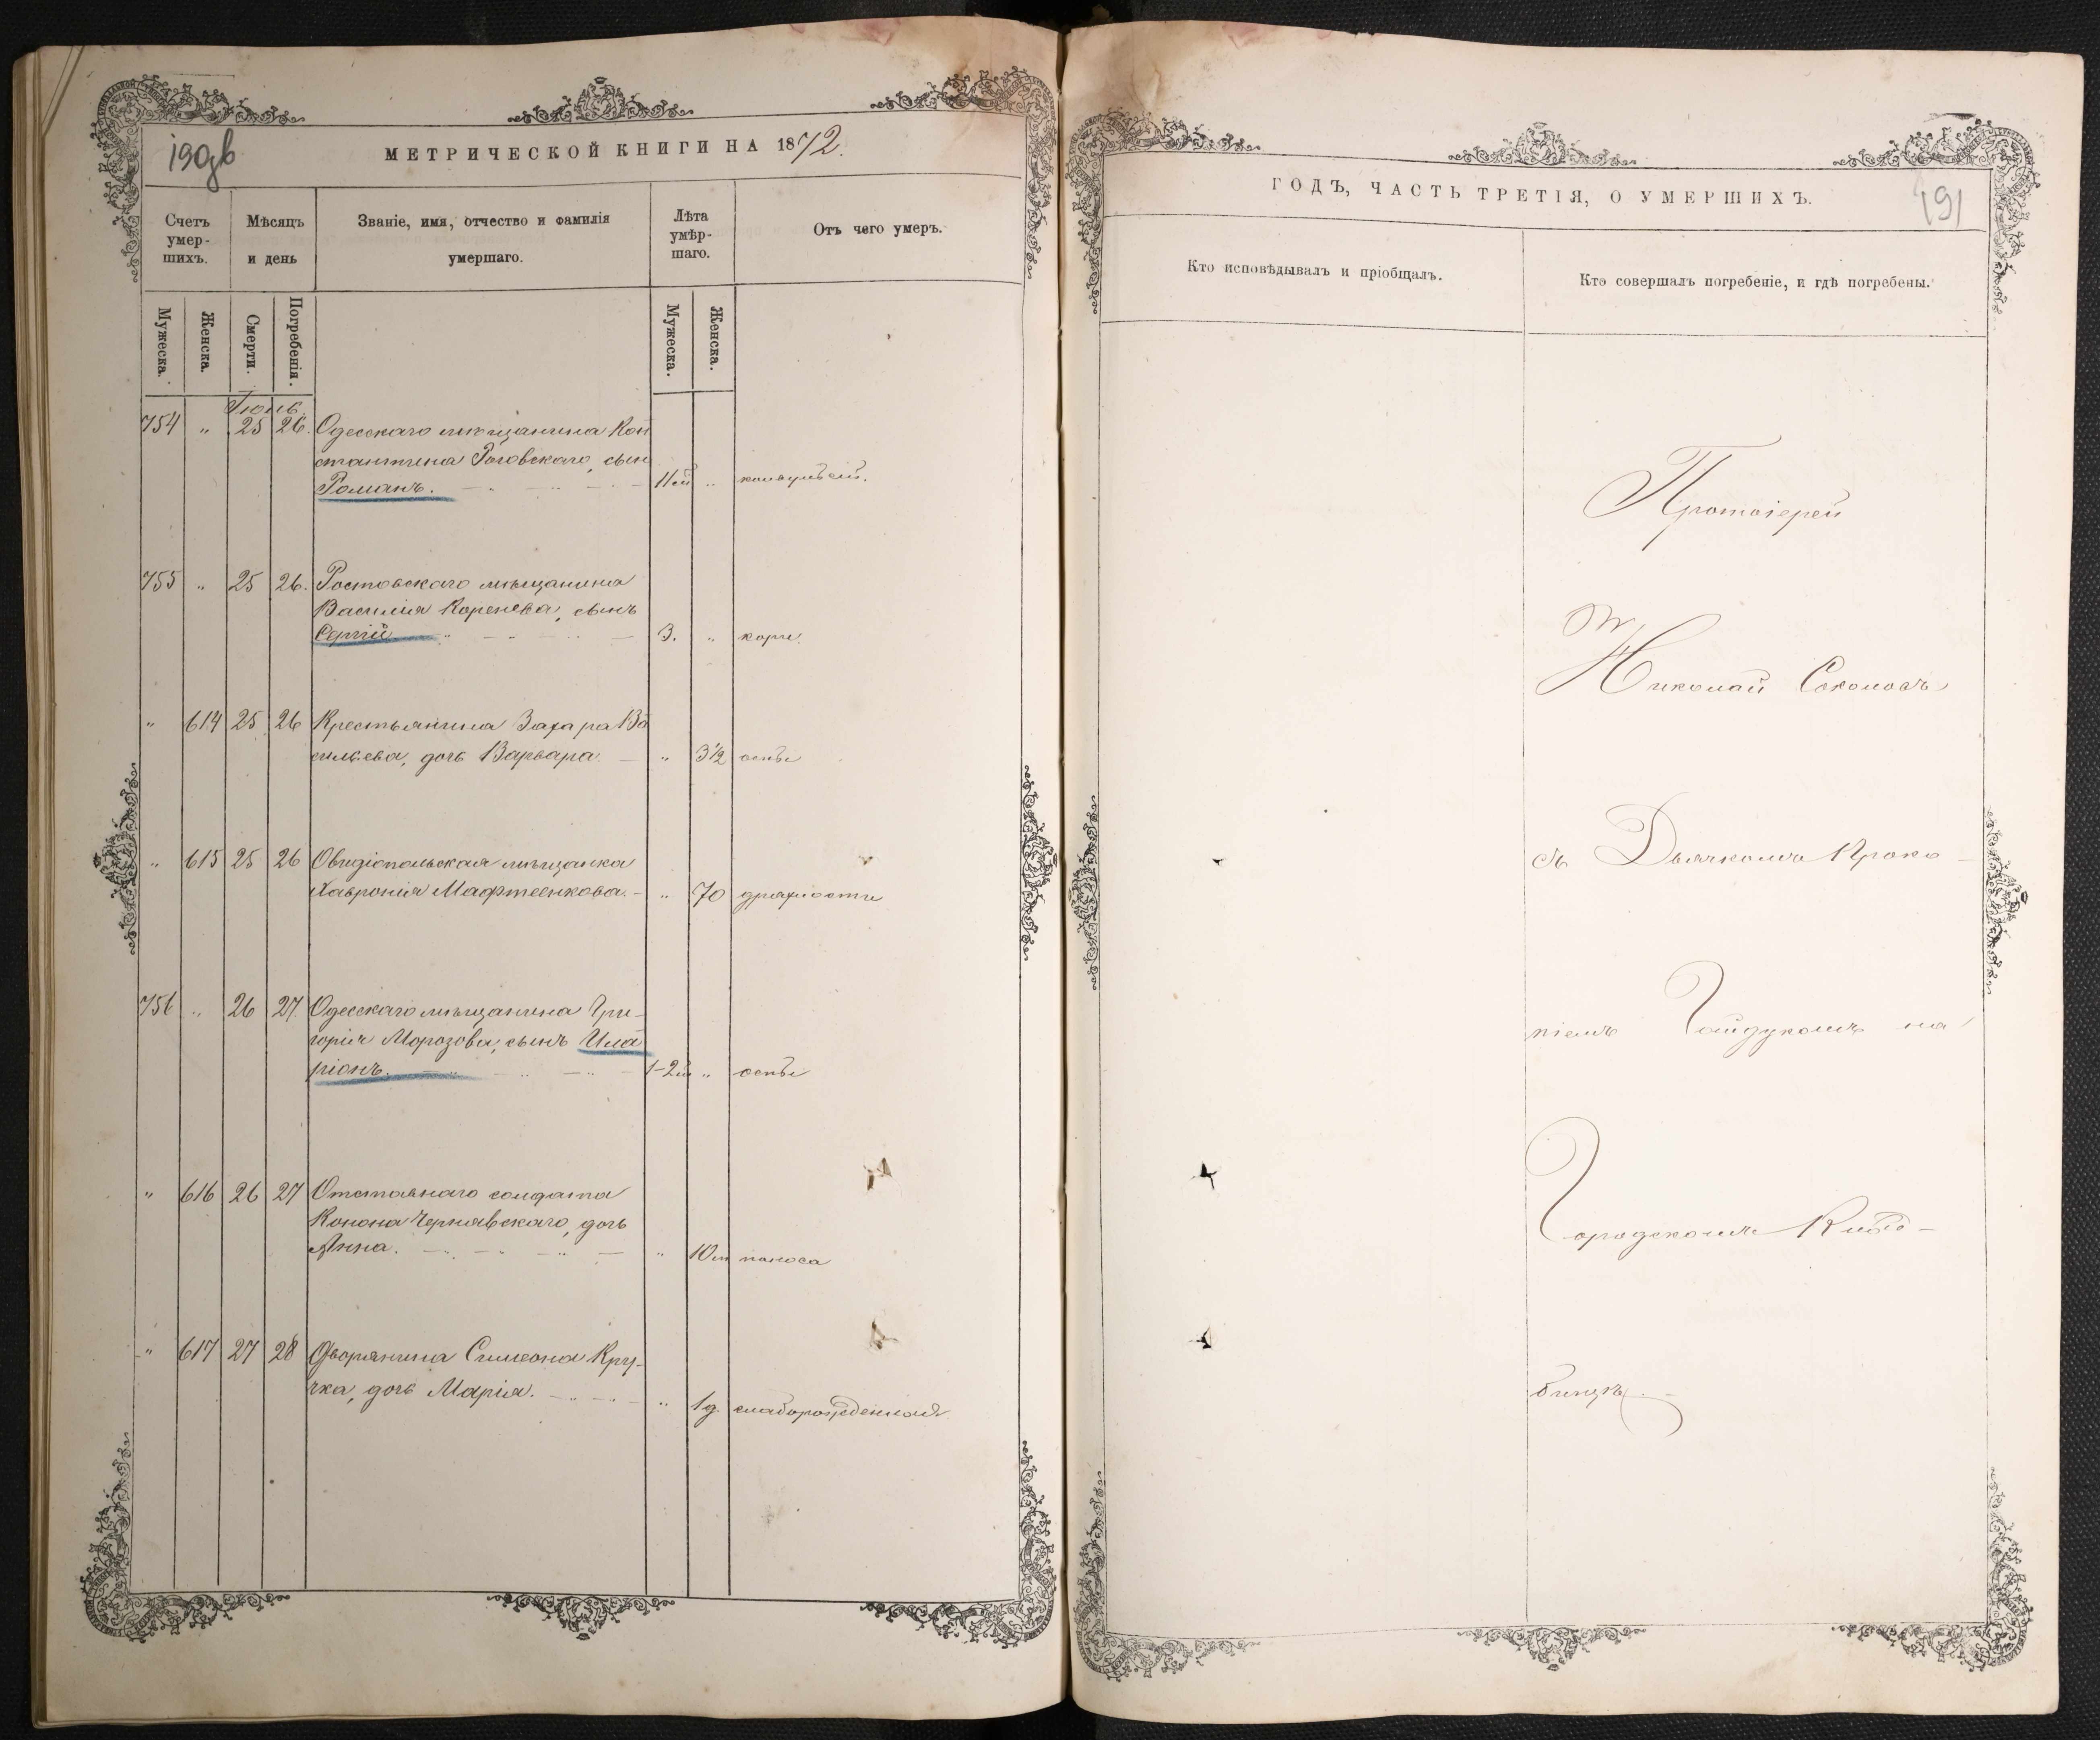 190об
МЕТРИЧЕСКОЙ КНИГИ НА 1872.
Счетъ умер-шихъ.
Мѣсяцъ и день
Званіе, имя, отчество и фамилія умершаго.
Лѣта умѣр-шаго.
Отъ чего умеръ.
Мужеска.
Женска.
Смерти.
Погребенія.
Мужеска.
Женска.
Іюнь.
754 „ 25 26. Одесскаго мѣщанина Кон
стантина Роговскаго, сын
Романъ. 11 м „ конвульсій.
755 „ 25 26. Ростовскаго мѣщанина
Василия Коренева, сынъ
Сергій 3. „ кори.
„ 614 25 26 Крестьянина Захара Ва
сильева, дочь Варвара „ 3½ оспы
„ 615 25 26 Овидіопольская мѣщанка
Хавронія Мафтеенкова. „ 70 дряхлости
756 „ 26 27. Одесскаго мѣщанина Гри-
горія Морозова, сынъ Ила
ріонъ. 1-2 м „ оспы
„ 616 26 27 Отставнаго солдата
Конона Чернявскаго, дочь
Анна. „ 10 м поноса
„ 617 27 28 Дворянина Симеона Кру-
чка, дочь Марія. „ 1 д. слаборожденная
ГОДЪ, ЧАСТЬ ТРЕТІЯ, О УМЕРШИХЪ.
191
Кто исповѣдывалъ и пріобщалъ.
Кто совершалъ погребеніе, и гдѣ погребены.
Протоіерей
Николай Соколовъ
съ Дьячкомъ Проко-
піемъ Гайдукомъ на
Городскомъ Кладо-
бищѣ.